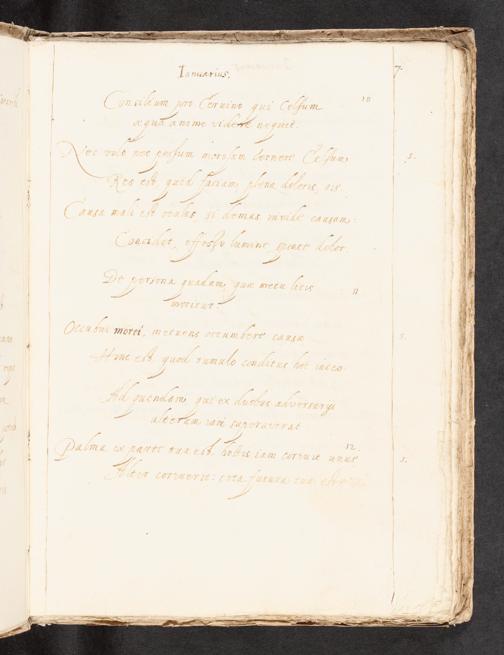 Ianuarius. 7.
Consilium pro Coruino qui Celsum 10
æquo animo videre nequit.
Nec volo nec possum incolam cernere Celsum, 5.
Res est, quid faciam, plena doloris,
Causa mali est oculus, si demas, inuide causam:
Concidet, effosso lumine, dolor.
De persona quadam, quæ metu litis 11
moritur.
Occubui morti, metuens occumbere causæ 5.
Hinc est quod tumulo conditus hoc iaceo.
Ad quendam, qui ex duobus adversarijs
alterum iam superaverat 12.
Palma ex parte tua est, hostis iam corruit unus 5.
Alter corruerit: tota futura tua est